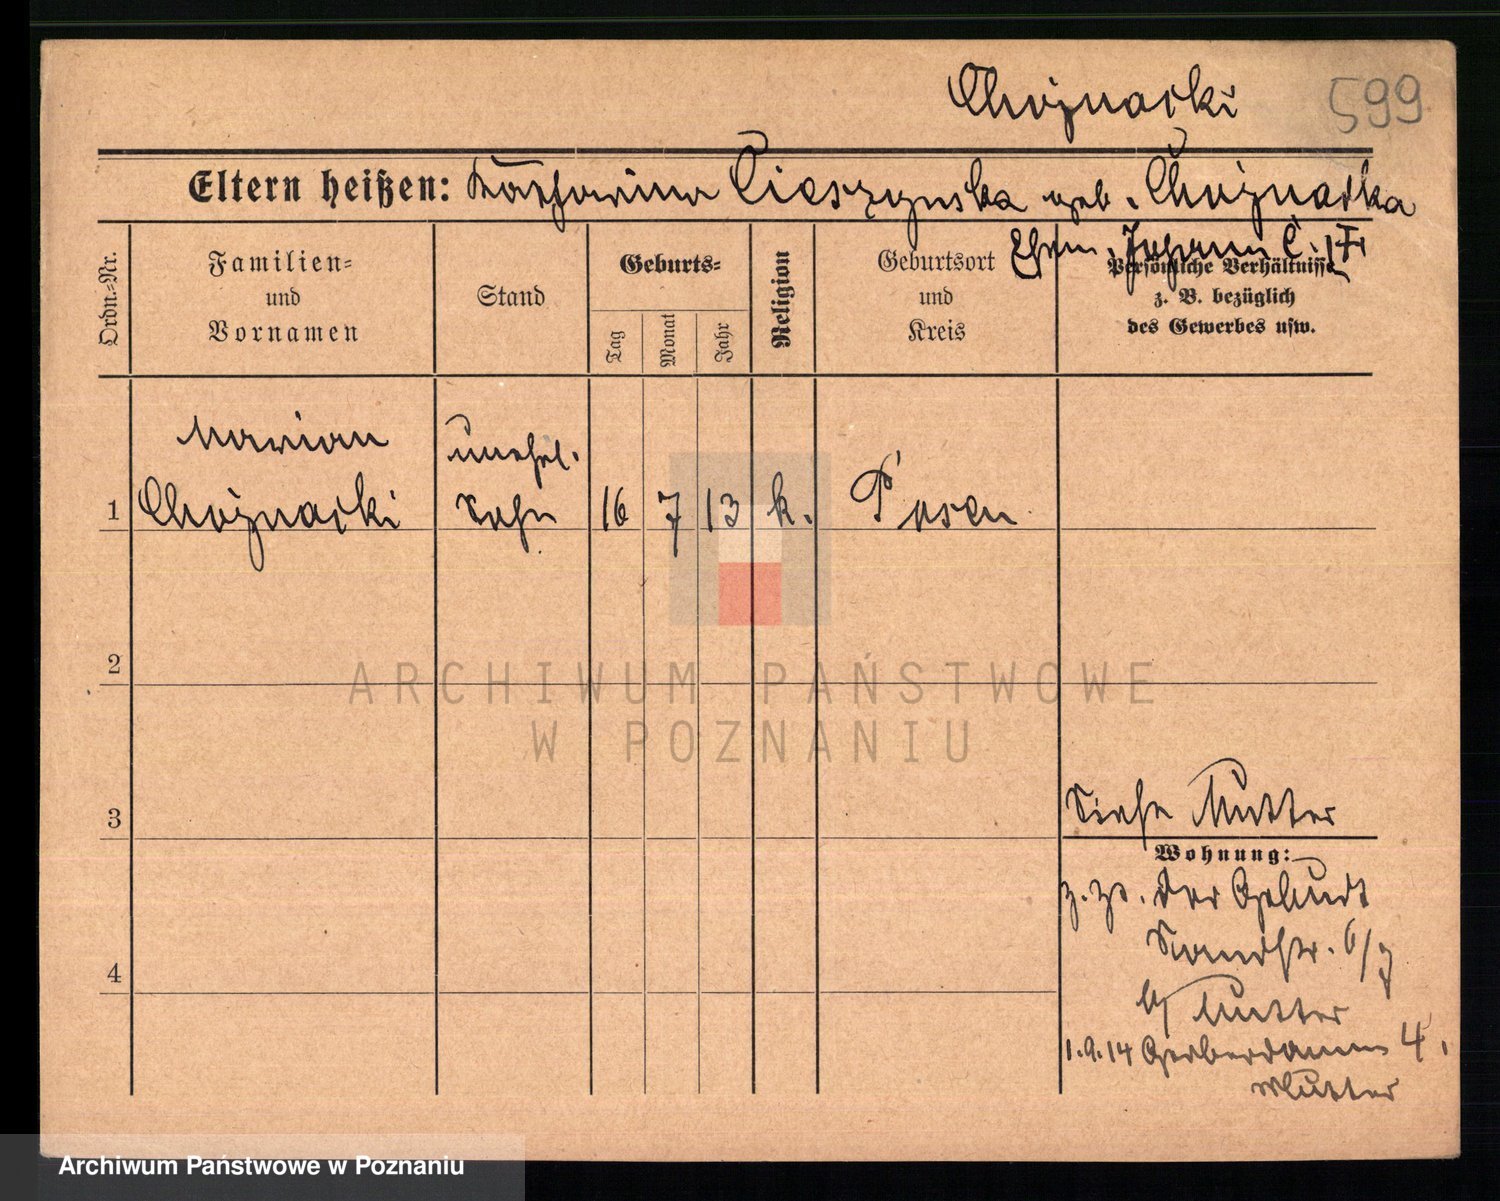 Chojnacki 599
Eltern heißen: Katharina Cieszynska geb. Chojnacka
Ehem. Johann C. , F.
Ordn.-Nr.
Familien-
und
Vornamen
Stand
Geburts-
Tag
Monat
Jahr
Religion
Geburtsort
und
Kreis
Persönliche Verhältnisse
z. B. bezüglich
des Gewerbes usw.
Marian unehel.
1 Chojnacki Sohn 16 7 13 k. Posen
2
3
4
Siehe Mutter
Wohnung:
z. Zt. der Geburt
Sandstr. 6/7
b/ Mutter
1.9.14 Gerberdamm 4.
Mutter
ARCHIWUM PAŃSTWOWE
W POZNANIU
Archiwum Państwowe w Poznaniu